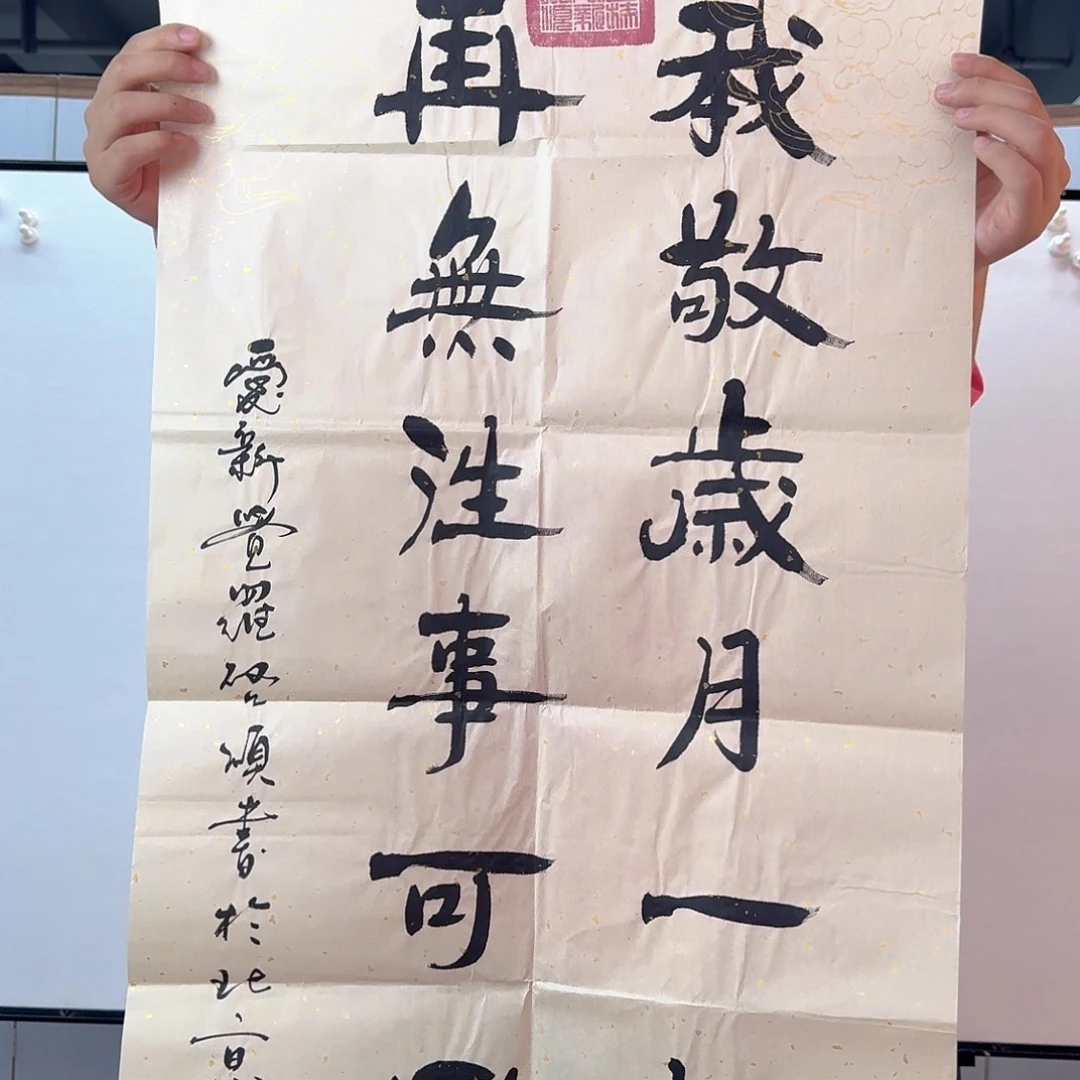 我敬歲月一
再無往事可
愛新覺羅啓頑書於北京